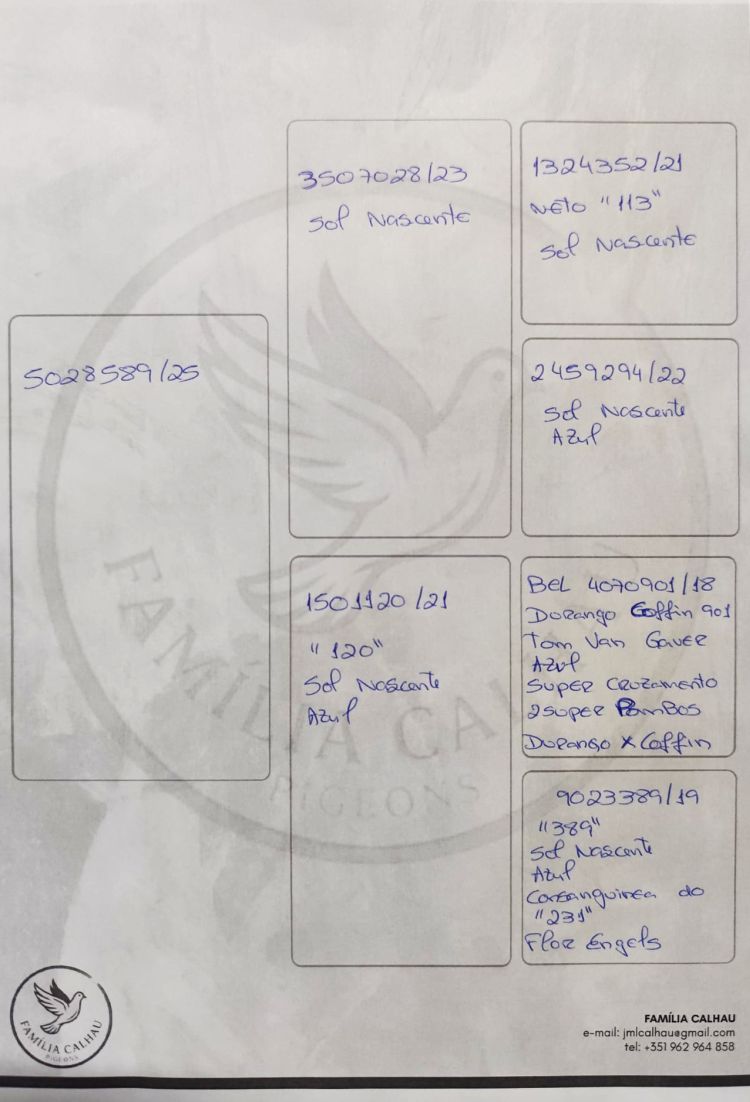 5028589/25
3507028/23
Sol Nascente
1501120/21
"120"
Sol Nascente
Azul
1324352/21
Neto "113"
Sol Nascente
2459294/22
Sol Nascente
Azul
BEL 4070901/18
Durango Coffin 901
Tom Van Gaver
Azul
Super Cruzamento
2 Super Pombos
Durango x Coffin
9023389/19
"389"
Sol Nascente
Azul
Consanguinea do
"231"
Flor Engels
FAMÍLIA CALHAU
PIGEONS
FAMÍLIA CAL
PIGEONS
FAMÍLIA CALHAU
e-mail: jmlcalhau@gmail.com
tel: +351 962 964 858